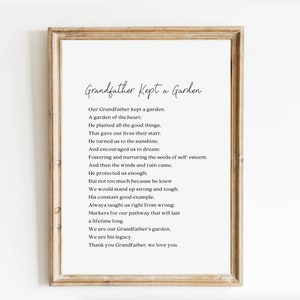 Grandfather Kept a Garden
Our Grandfather kept a garden.
A garden of the heart;
He planted all the good things,
That gave our lives their start.
He turned us to the sunshine,
And encouraged us to dream:
Fostering and nurturing the seeds of self-esteem.
And then the winds and rain came,
He protected us enough;
But not too much because he knew
We would stand up strong and tough.
His constant good example,
Always taught us right from wrong;
Markers for our pathway that will last
a lifetime long.
We are our Grandfather's garden,
We are his legacy.
Thank you Grandfather, we love you.